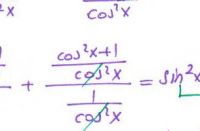 cos²x
+ \frac{\frac{cos²x+1}{cos²x}}{\frac{1}{cos²x}} = sin²x